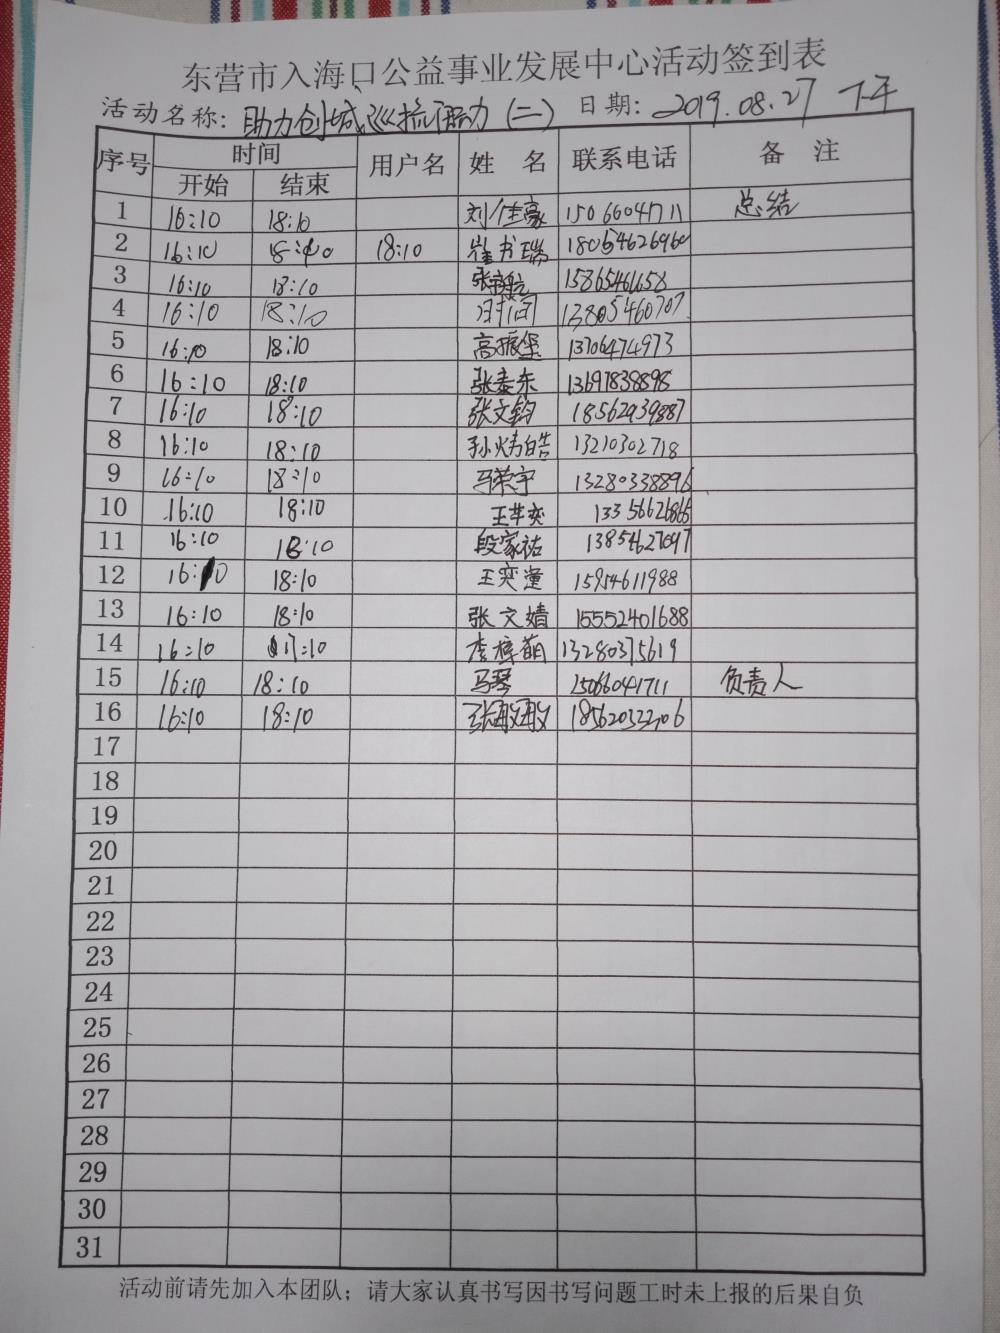 东营市入海口公益事业发展中心活动签到表
活动名称: 助力创城 (二) 日期: 2019.08.27 下午
序号 时间 用户名 姓 名 联系电话 备 注
开始 结束
1 16:10 18:10 刘佳豪 15066041711 总结
2 16:10 18:10 18:10 崔书瑞 18054626960
3 16:10 18:10
4 16:10 18:10 13805460707
5 16:10 18:10 高振堡 13706474973
6 16:10 18:10 张泰东 13697838898
7 16:10 18:10 张文钧 18562939887
8 16:10 18:10 孙炜皓 13210302718
9 16:10 18:10 马荣宇 13280338896
10 16:10 18:10 王芊奕
11 16:10 18:10 段家祐 13854627097
12 16:10 18:10 王奕潼 15954611988
13 16:10 18:10 张文婧 15552401688
14 16:10 17:10 李梓萌 13280375619
15 16:10 18:10 马琴 15066041711 负责人
16 16:10 18:10 张敏敏 18562032206
17
18
19
20
21
22
23
24
25
26
27
28
29
30
31
活动前请先加入本团队；请大家认真书写因书写问题工时未上报的后果自负